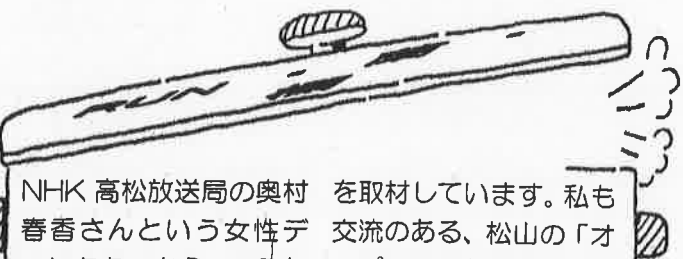 NHK 高松放送局の奥村
春香さんという女性デ
を取材しています。私も
交流のある、松山の「オ